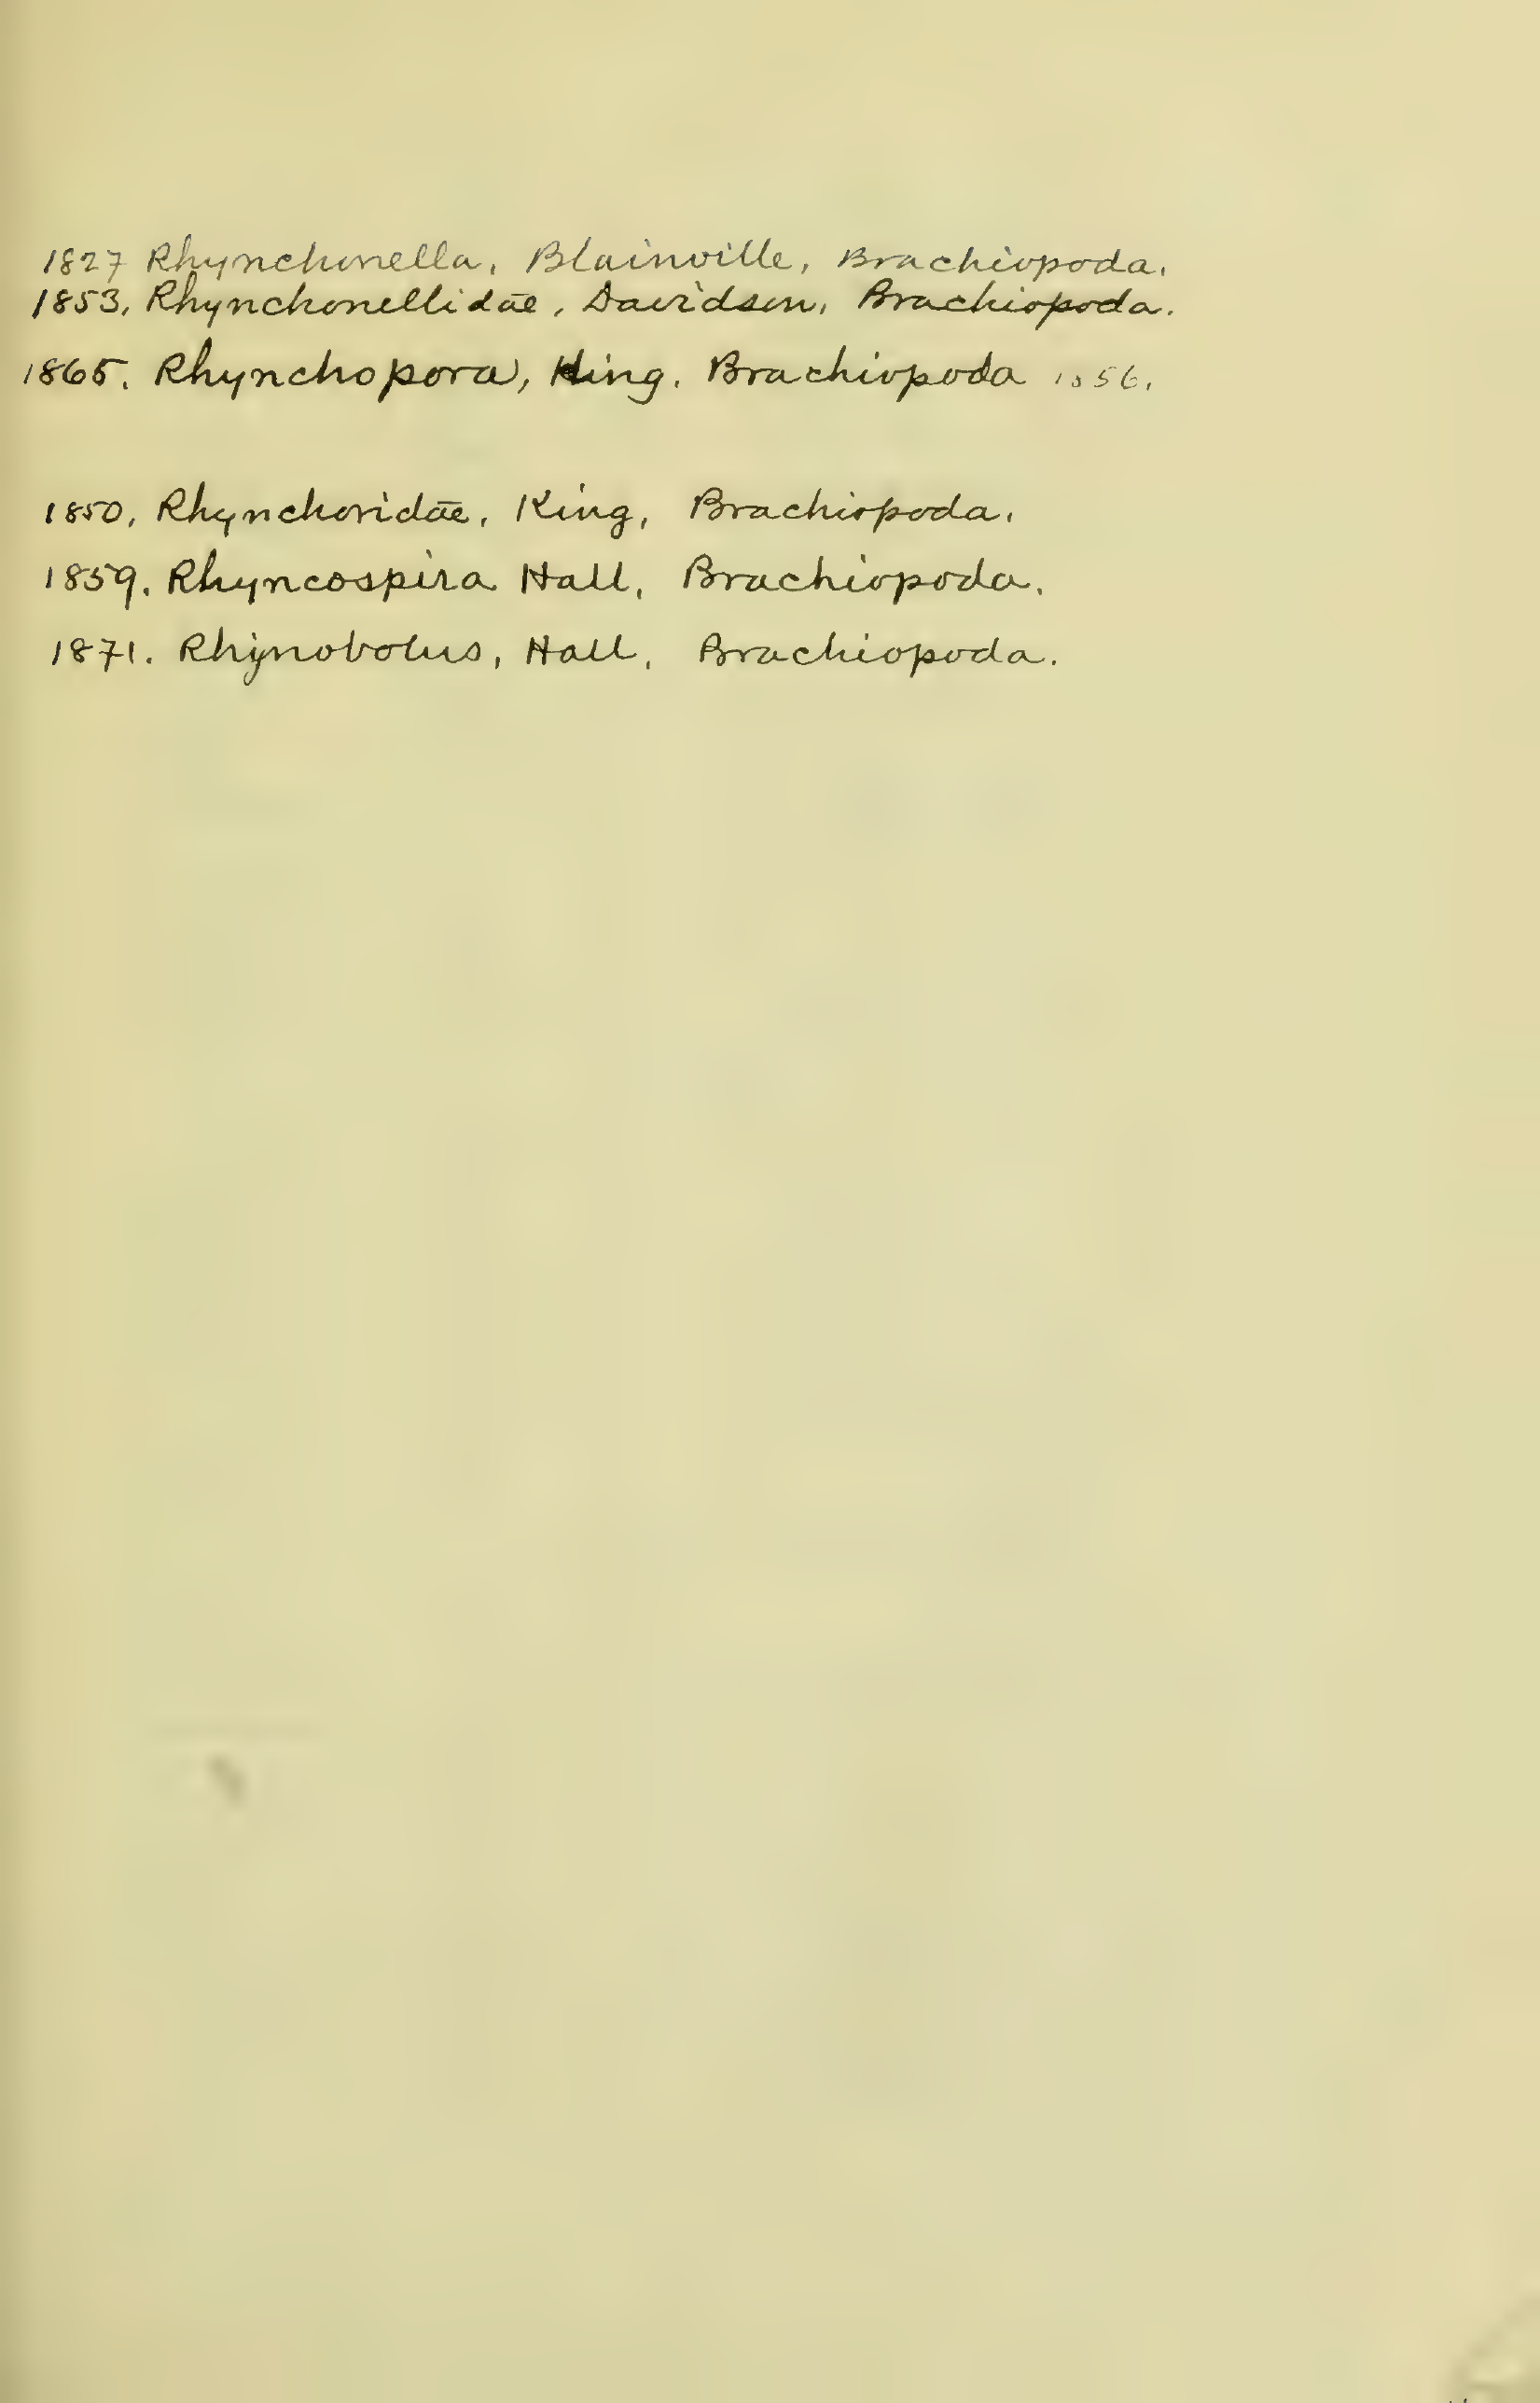 1827 Rhynchonella, Blainville, Brachiopoda.
1853, Rhynchonellidae, Davidson, Brachiopoda.
1865. Rhynchopora, King. Brachiopoda 1856.
1850, Rhynchoridae, King, Brachiopoda.
1859. Rhyncospira Hall, Brachiopoda.
1871. Rhynobolus, Hall, Brachiopoda.